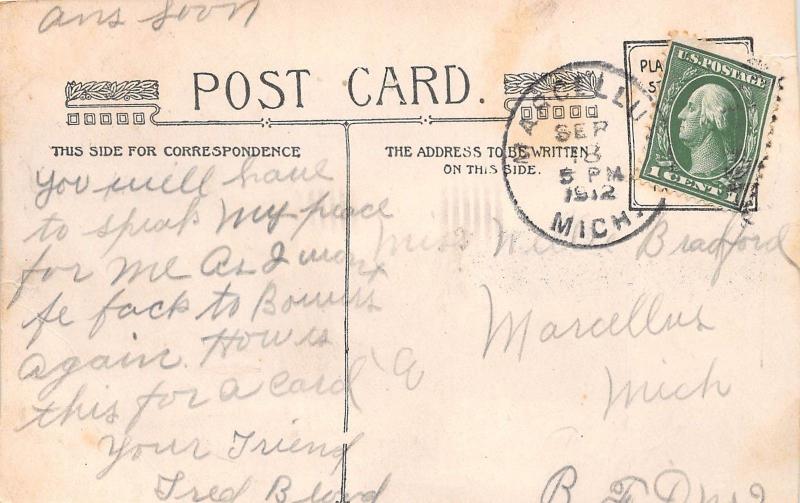 ans soon
POST CARD.
THIS SIDE FOR CORRESPONDENCE
THE ADDRESS TO BE WRITTEN
ON THIS SIDE.
PLA
ST
U.S. POSTAGE
1 CENT
MARCELLU
SEP
3
5 PM
1912
MICH.
You will have
to speak My peace
for me As I
fe back to
again. How is
this for a card
Your Friend
Fred
Miss Bradford
Marcellus
Mich
R F D